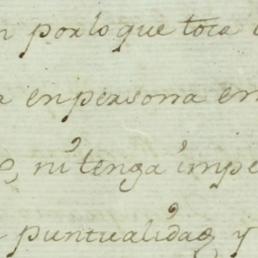 n por lo que toca
a en persona en
ni tenga impe
puntualidad y